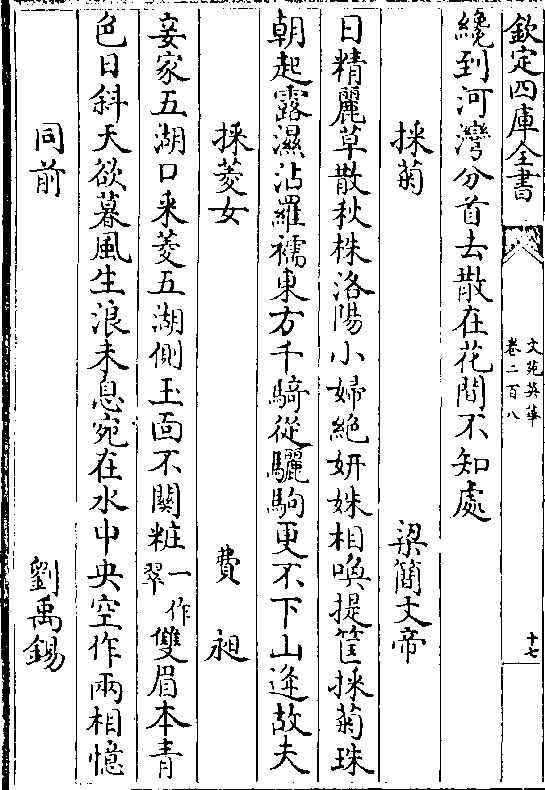 欽定四庫全書
文苑英華
卷二百八
十七
纔到河灣分首去散在花間不知處
採菊
梁簡文帝
日精麗草散秋株洛陽小婦絶妍姝相喚提筐採菊珠
朝起露濕沾羅襦東方千騎從驪駒更不下山逢故夫
採菱女
費昶
妾家五湖口采菱五湖側玉面不關粧
一作
翠
雙眉本青
色日斜天欲暮風生浪未息宛在水中央空作兩相憶
同前
劉禹錫